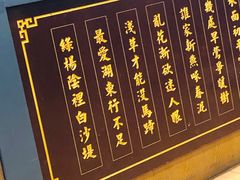 處早鶯爭暖樹
誰家新燕啄春泥
亂花漸欲迷人眼
淺草才能沒馬蹄
最愛湖東行不足
綠楊陰裡白沙堤